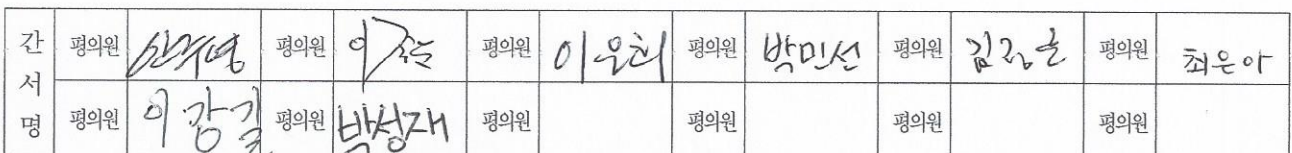 간서명 평의원 안주영 평의원 이 평의원 이윤희 평의원 박민선 평의원 김 평의원 최은아
평의원 이강길 평의원 박성재 평의원 평의원 평의원 평의원